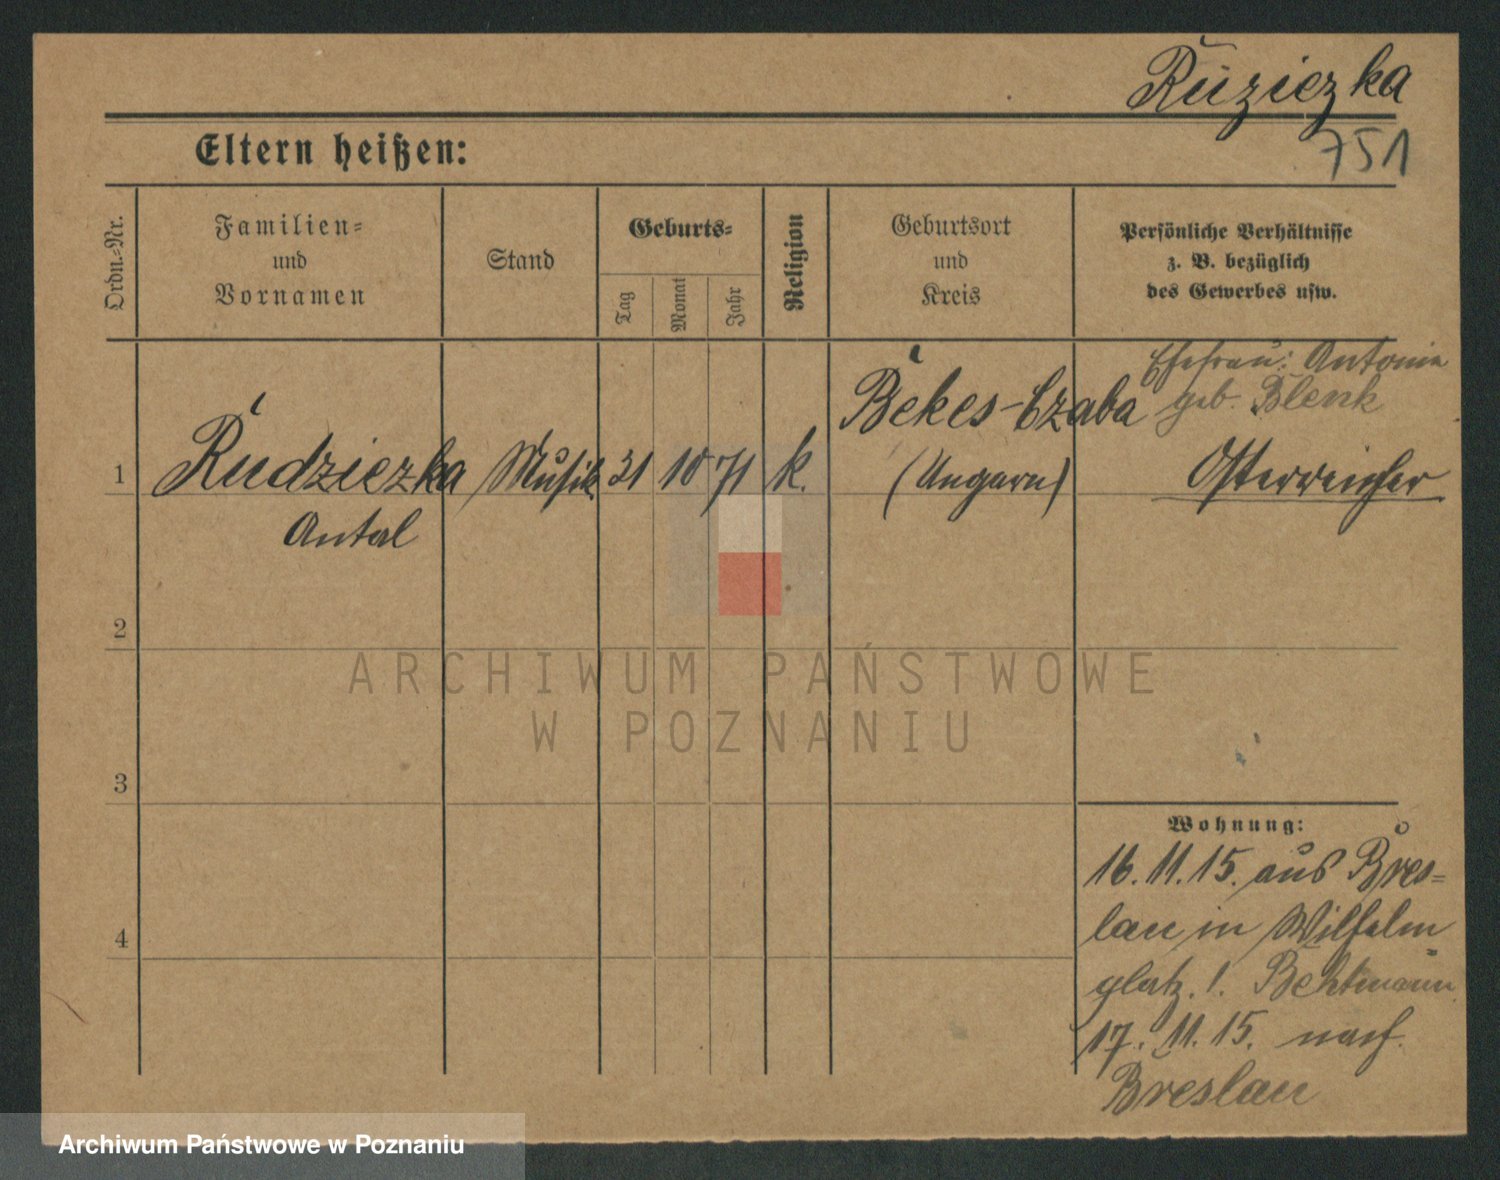 Ruziczka
751
Eltern heißen:
Ordn.-Nr.
Familien-
und
Vornamen
Stand
Geburts-
Tag
Monat
Jahr
Religion
Geburtsort
und
Kreis
Persönliche Verhältnisse
z. B. bezüglich
des Gewerbes usw.
Ehefrau: Antonie
geb. Blenk
1
Rudziczka
Antal
Musik
31
10
71
k.
Békes-Czaba
(Ungarn)
Österreicher
2
3
4
Wohnung:
16.11.15. aus Bres-
lau in Wilhelm
platz. 1.
17. 11. 15. nach
Breslau
ARCHIWUM PAŃSTWOWE
W POZNANIU
Archiwum Państwowe w Poznaniu